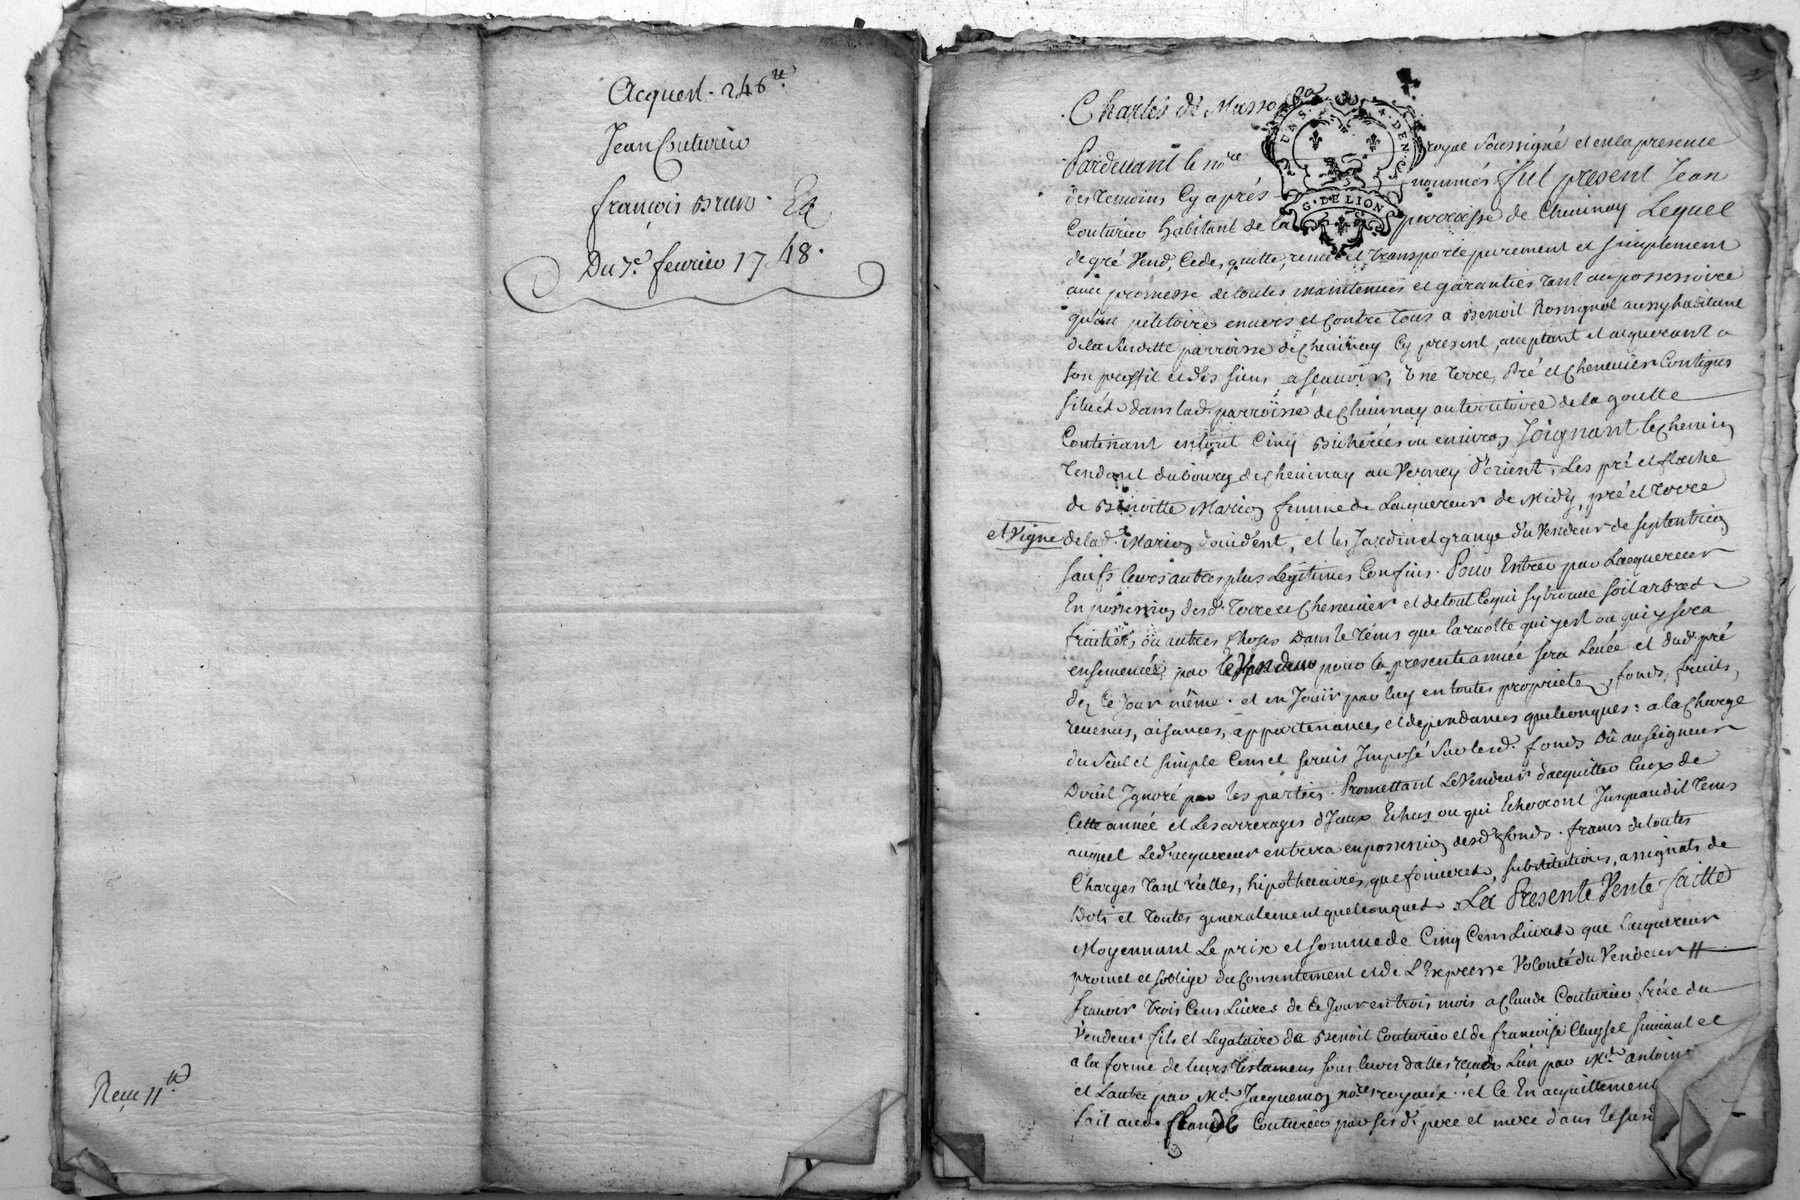 Acquest. 246 ₶.
Jean Couturier
françois Brun.
Du 7e. fevrier 1748.
Reçu 11 ₶
Charles de Masso
G. DE LION
Pardevant le nore royal soussigné et en la presence
des temoins Cy après nommés fut present Jean
Couturier habitant de la parroisse de Chevinay Lequel
de gré Vend, Cede, quitte, remet et transporte purement et simplement
avec promesse de toutes maintenues et garanties tant au possessoire
qu'au petitoire envers et Contre tous a Benoit Rossignol aussy habitant
de la susditte parroisse de Chevinay Cy present, acceptant et acquerant a
son proffit et des siens, a sçauoir, Une terre, Pré et Chenevier Contigus
situés dans lad. parroisse de Chevinay au territoire de la goutte
Contenant en tout Cinq Bicherées ou environ Joignant le Chemin
tendant du bourg de Chevinay au Verney d'orient, Les pré et flache
de Benoitte Marion femme de Lacquereur de Midy, pré et terre
et Vigne de lad. Marion d'occident, et les Jardin et grange du Vendeur de septentrion
saufs leurs autres plus Légitimes Confins. Pour Entrer par Lacquereur
En possession desd. terre et Chenevier et de tout ce qui s'y trouve soit arbres
fruitiers ou autres Choses dans le tems que la recolte qui y est ou qui y sera
ensemencée par le Vendeur pour la presente année sera Levée et dud. pré
dez ce jour même. et en Jouir par luy en toutes proprieté, fonds, fruits,
revenus, aisances, appartenances et dependances quelconques: a la Charge
du seul et simple Cens et servis Imposé sur lesd. fonds Dû au seigneur
Direct Ignoré par les parties. Promettant Le Vendeur d'acquitter Ceux de
Cette année et Les arrerages d'Iceux Echus ou qui Echerront Jusquaudit tems
auquel Led. acquereur entrera en possession desd. fonds. francs de toutes
Charges tant réelles, hipothecaires, que foncieres, substitutions, assignats de
Dots et toutes generalement quelconques. La Presente Vente faitte
Moyennant Le prix et somme de Cinq Cens Livres que Lacquereur
promet et s'oblige du Consentement et de L'Expresse Volonté du Vendeur
sçavoir trois Cens Livres de ce Jour en trois mois a Claude Couturier frére du
Vendeur fils et Legataire de Benoit Couturier et de francoise Cluysel suivant et
a la forme de leurs testamens sous leurs dattes receus Lun par Me. antoine
et Lautre par Me. Jacquemon nores royaux. et ce En acquittement
fait aud. Claude Couturier par ses d. pere et mere dans le susd